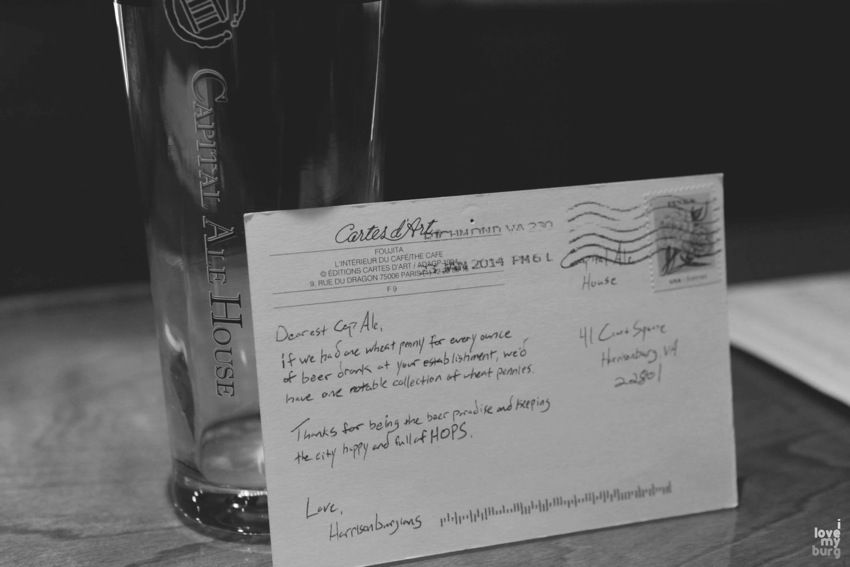 CAPITAL ALE HOUSE
Cartes d'Art
FOUJITA
L'INTÉRIEUR DU CAFÉ/THE CAFE
© ÉDITIONS CARTES D'ART / ADAGP 1994
9, RUE DU DRAGON 75006 PARIS
F 9
RICHMOND VA 230
JAN 2014 PM 6 L
Capital Ale
House
41 Court Square
Harrisonburg, VA
22801
Dearest Cap Ale,
If we had one wheat penny for every ounce
of beer drank at your establishment, we'd
have one notable collection of wheat pennies.
Thanks for being the beer paradise and keeping
the city happy and full of HOPS.
Love,
Harrisonburgians
i
love
my
burg